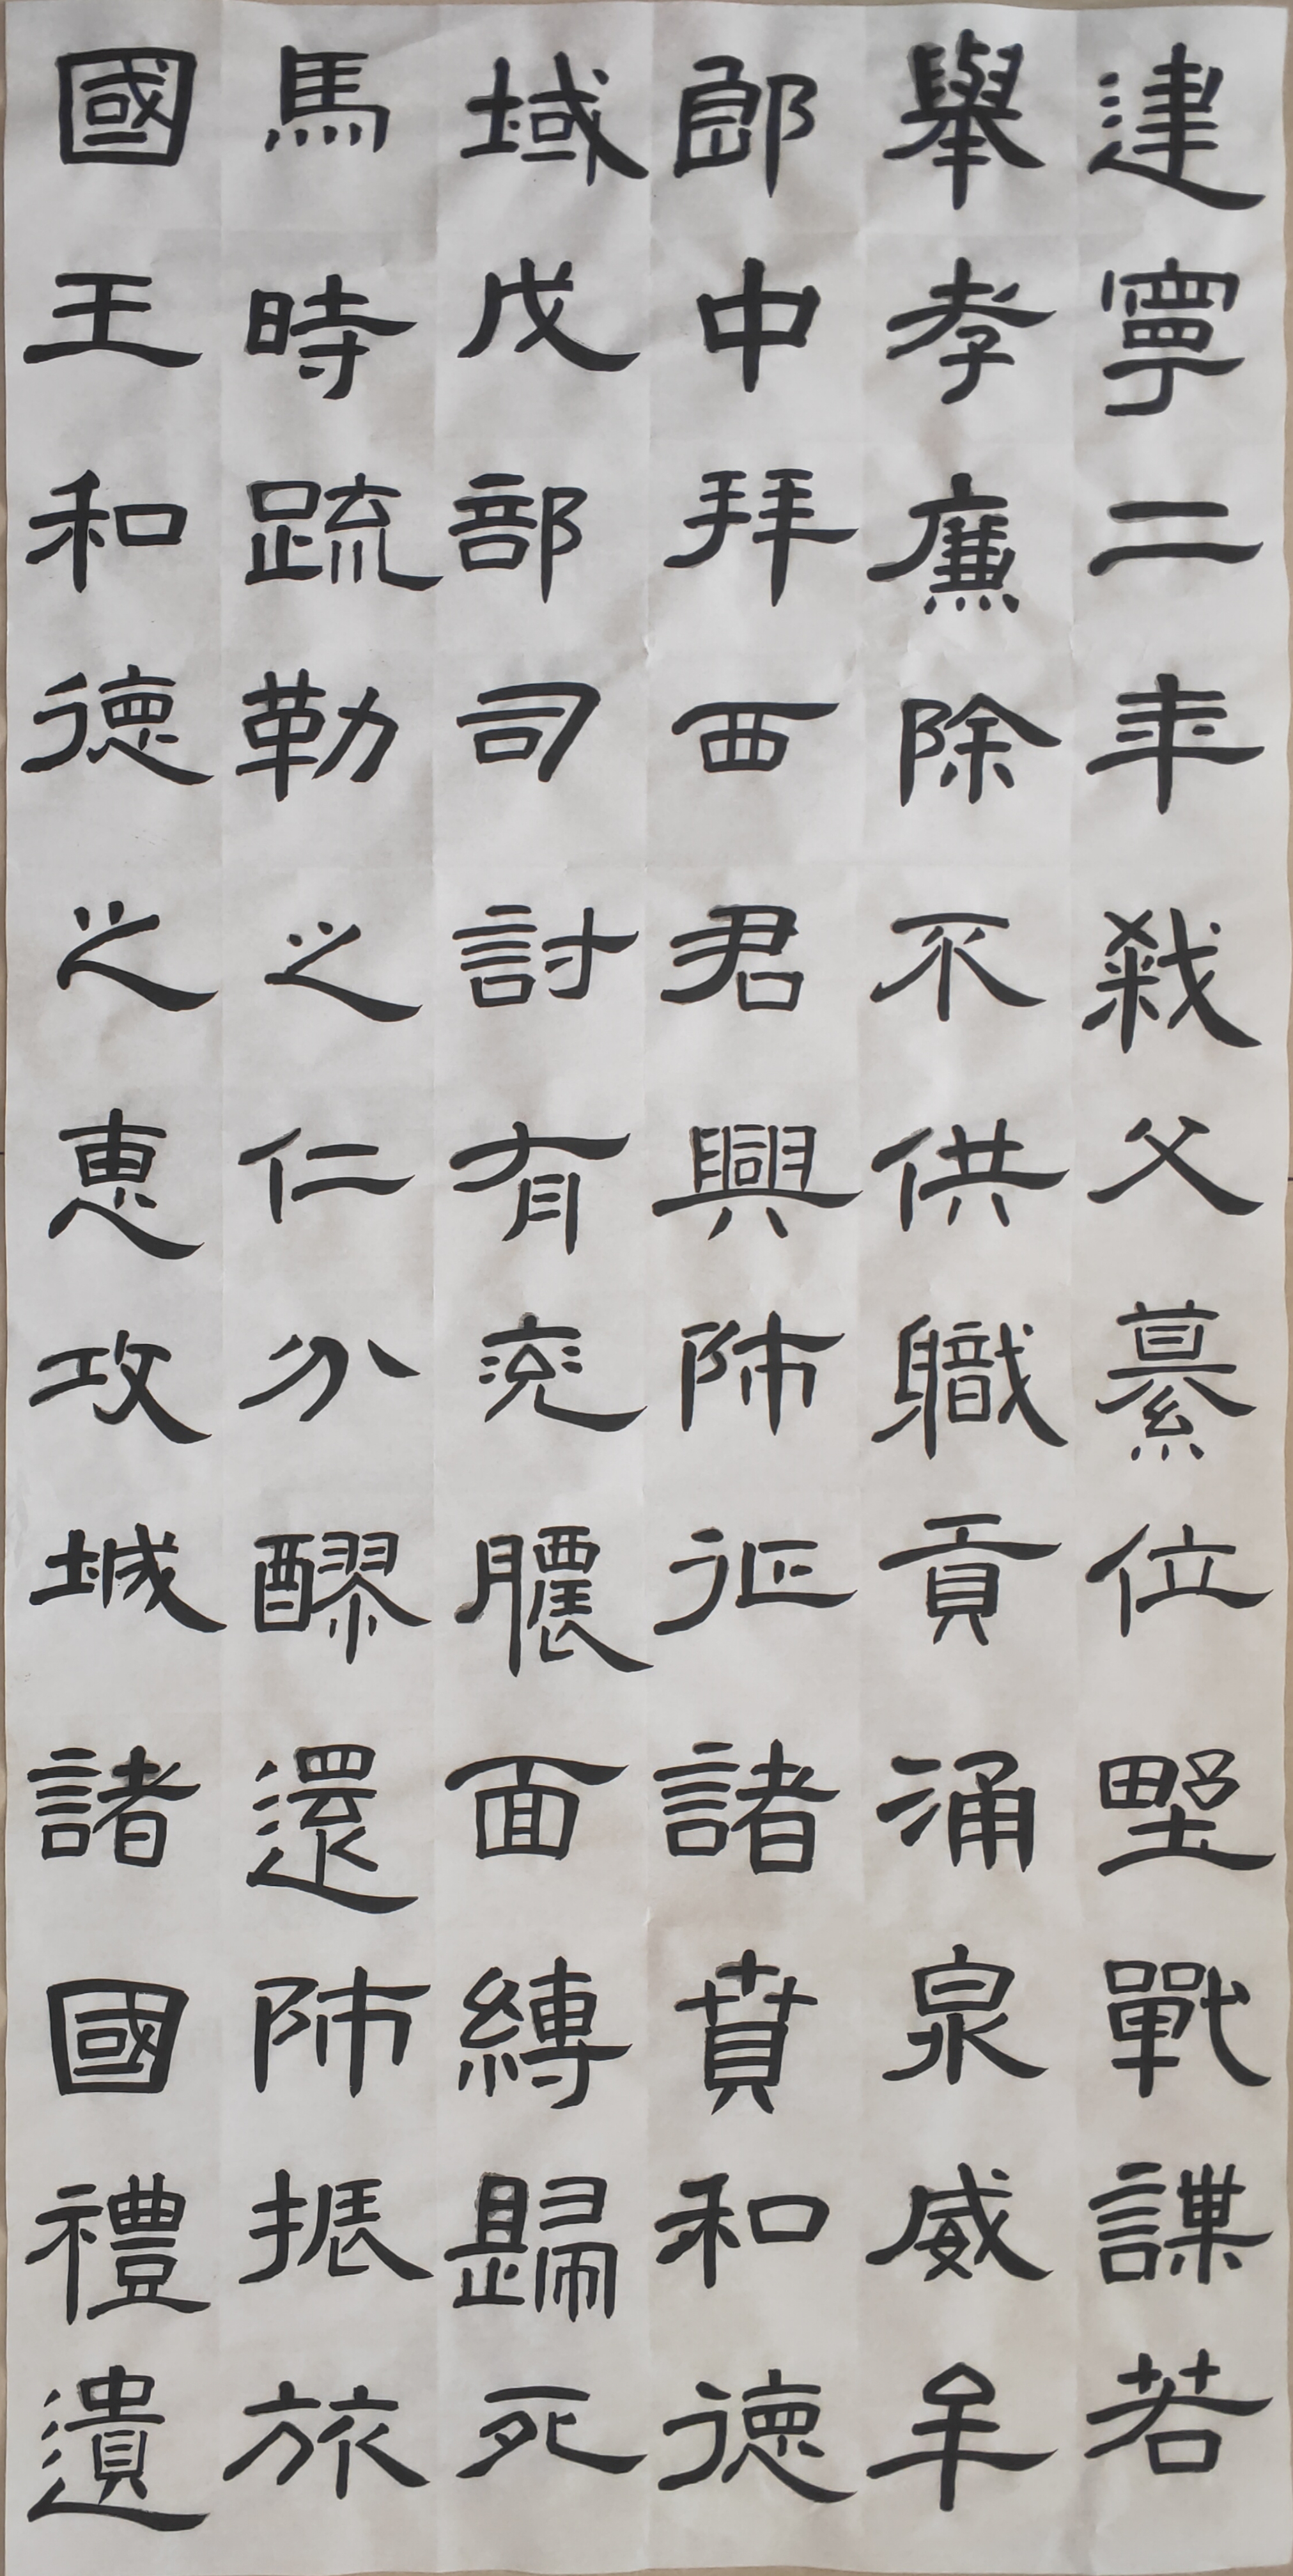 建寧二年
舉孝廉除
郎中拜西
域戊部司
馬時疏勒
國王和德
弒父篡位
不供職貢
君興師征
討有兗膿
之仁分醪
之惠攻城
野戰謀若
涌泉威牟
諸賁和德
面縛歸死
還師振旅
諸國禮遺